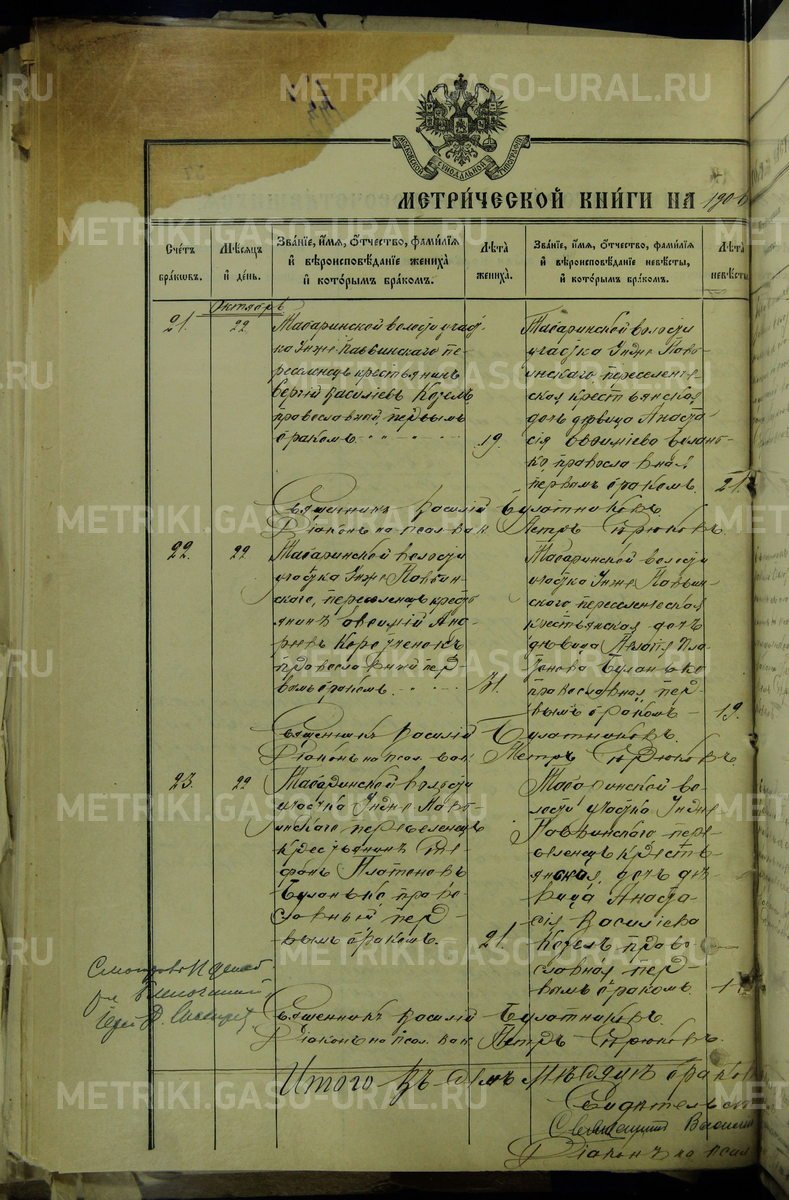 METRIKI.GASO-URAL.RU
МОСКОВСКОЙ СѴНОДАЛЬНОЙ ТИПОГРАФІИ
МЕТРИ́ЧЕСКОЙ КНИ́ГИ НА 190
Сче́тъ бра́кωвъ.
Мѣ́сяцъ и҆ де́нь.
Зва́нїе, и҆́мя, ѻ҆́тчество, фами́лїя и҆ вѣроисповѣ́данїе жениха̀ и҆ кото́рымъ бра́комъ.
Лѣ́та жениха̀.
Зва́нїе, и҆́мя, ѻ҆́тчество, фами́лїя и҆ вѣроисповѣ́данїе невѣ́сты, и҆ кото́рымъ бра́комъ.
Лѣ́та невѣ́сты
Октябрь
21. 22
Табаринской волости участ-
ка Инже-Павинскаго пе-
реселенецъ крестьянинъ
Сергій Василіевъ Козелъ
православной, первымъ
бракомъ.
19.
Табаринской волости
участка Инже Пави-
инскаго, переселенче-
ская крестьянская
дочь дѣвица Анаста-
сія Евѳиміева
православная
первымъ бракомъ.
21.
Священникъ Василій Булатниковъ.
Діаконъ на псал. вак. Петръ Крюковъ
22. 22
Табаринской волости
участка Инже Павин-
скаго, переселенецъ кресть-
янинъ Евѳимій Анд-
реевъ
православный пер-
вымъ бракомъ.
31.
Табаринской волости
участка Инже Павин-
скаго переселенческая
крестьянская дочь
дѣвица Пла-
тонова Буланько
православная, пер-
вымъ бракомъ
19.
Священникъ Василій Булатниковъ.
Діаконъ на псал. вак. Петръ Крюковъ
23. 22
Табаринской волости
участка Инже Пави-
инскаго переселенецъ
крестьянинъ
Платоновъ
Буланько право-
славный пер-
вымъ бракомъ.
21.
Табаринской во-
лости участка Инже
Павинскаго пере-
селенецъ кресть-
янская, дочь дѣ-
вица Анаста-
сія Василіева
Козелъ право-
славная пер-
вымъ бракомъ.
Священникъ Василій Булатниковъ.
Діаконъ на псал. вак. Петръ Крюковъ.
Итого въ семъ мѣсяцѣ браков
Священникъ Васил
Діаконъ на псал